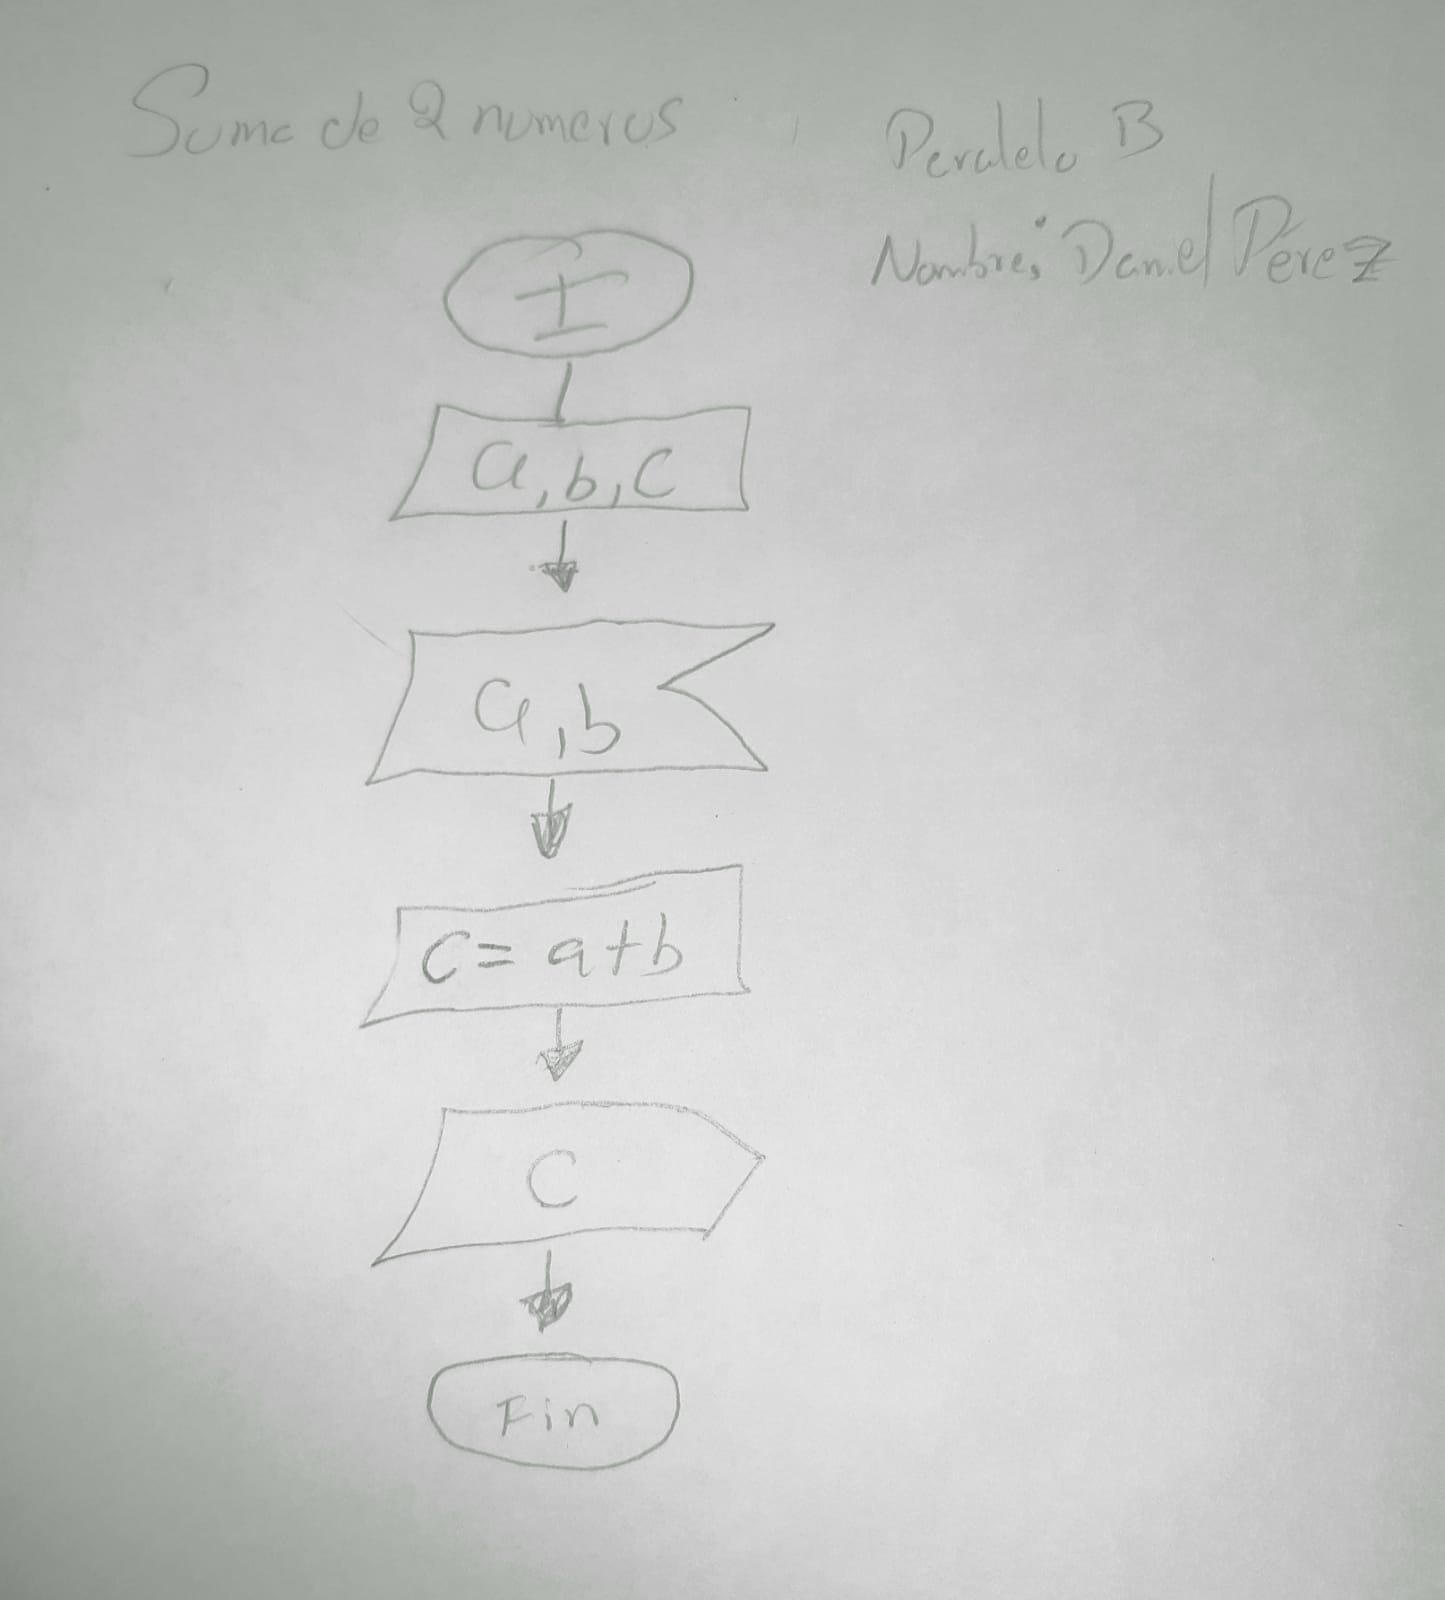 Suma de 2 numeros
Paralelo B
Nombre: Daniel Pérez
I
a, b, c
a, b
c = a+b
c
Fin